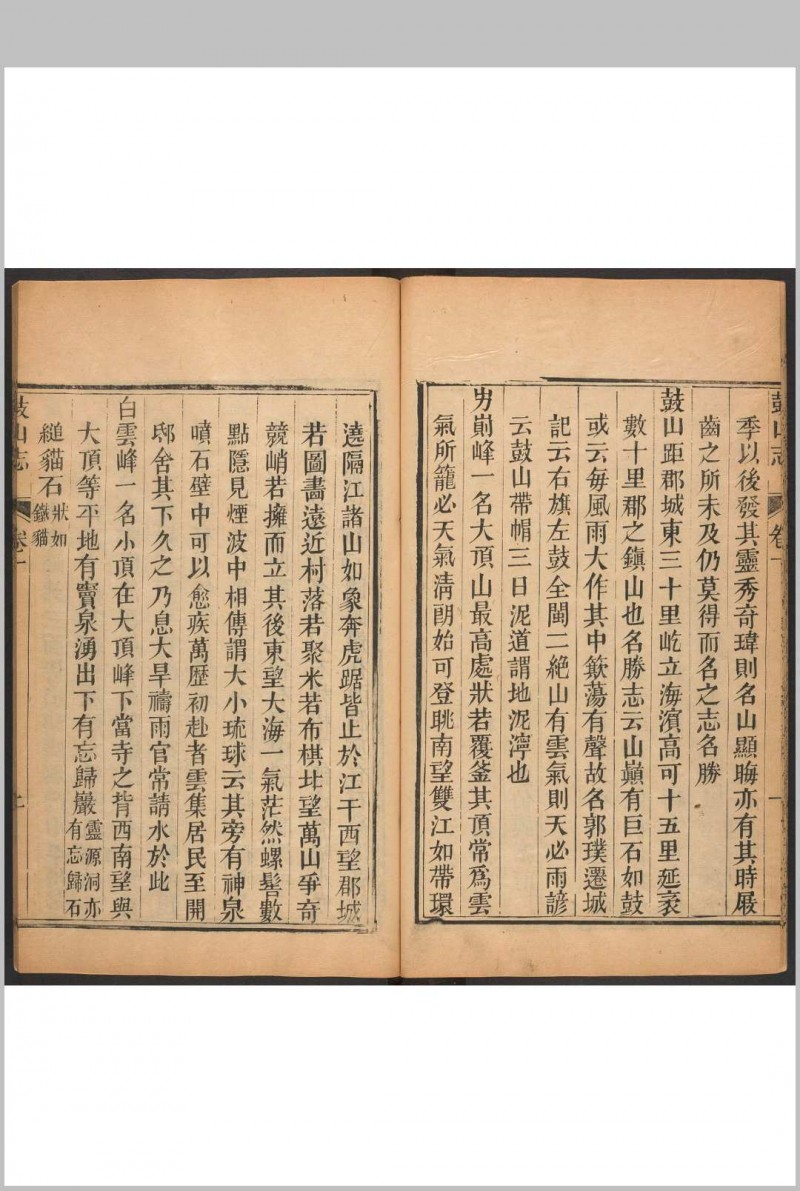 鼓山志
卷一
一
季以後發其靈秀奇瑋則名山顯晦亦有其時屐
齒之所未及仍莫得而名之志名勝
鼓山距郡城東三十里屹立海濱高可十五里延袤
數十里郡之鎮山也名勝志云山巔有巨石如鼓
或云每風雨大作其中簸蕩有聲故名郭璞遷城
記云右旗左鼓全閩二絶山有雲氣則天必雨諺
云鼓山帶帽三日泥道謂地泥濘也
屴崱峰一名大頂山最高處狀若覆釜其頂常爲雲
氣所籠必天氣淸朗始可登眺南望雙江如帶環
遶隔江諸山如象奔虎踞皆止於江干西望郡城
若圖畵遠近村落若聚米若布棋北望萬山爭奇
競峭若擁而立其後東望大海一氣茫然螺髻數
點隱見煙波中相傳謂大小琉球云其旁有神泉
噴石壁中可以愈疾萬歷初赴者雲集居民至開
邸舍其下久之乃息大旱禱雨官常請水於此
白雲峰一名小頂在大頂峰下當寺之背西南望與
大頂等平地有竇泉湧出下有忘歸巖靈源洞亦有忘歸石
縋貓石狀如鐵貓
鼓山志
卷一